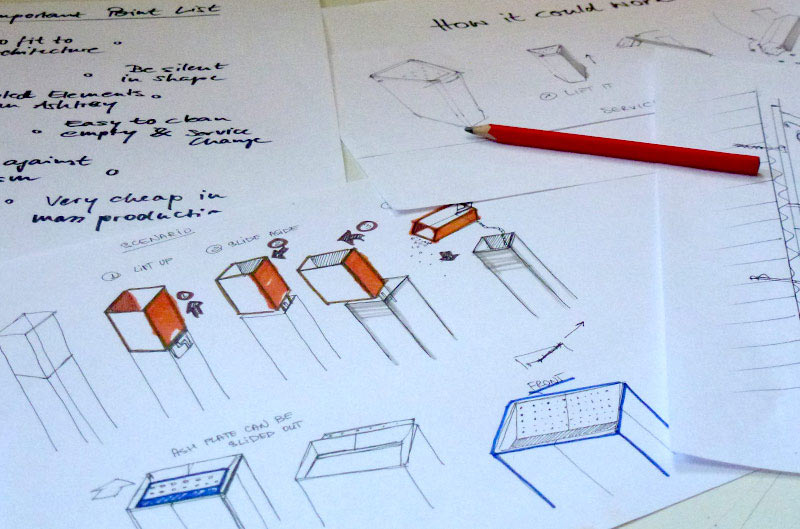 mportant Point List
o fit to
chitecture
Be silent
in shape
Elements
an Ashtray
Easy to clean
empty & service
change
against
sm
Very cheap in
mass production
How it could work
② LIFT IT
SERVIC
SCENARIO
① LIFT UP
② SLIDE ASIDE
ASH PLATE CAN BE
SLIDED OUT
FRONT